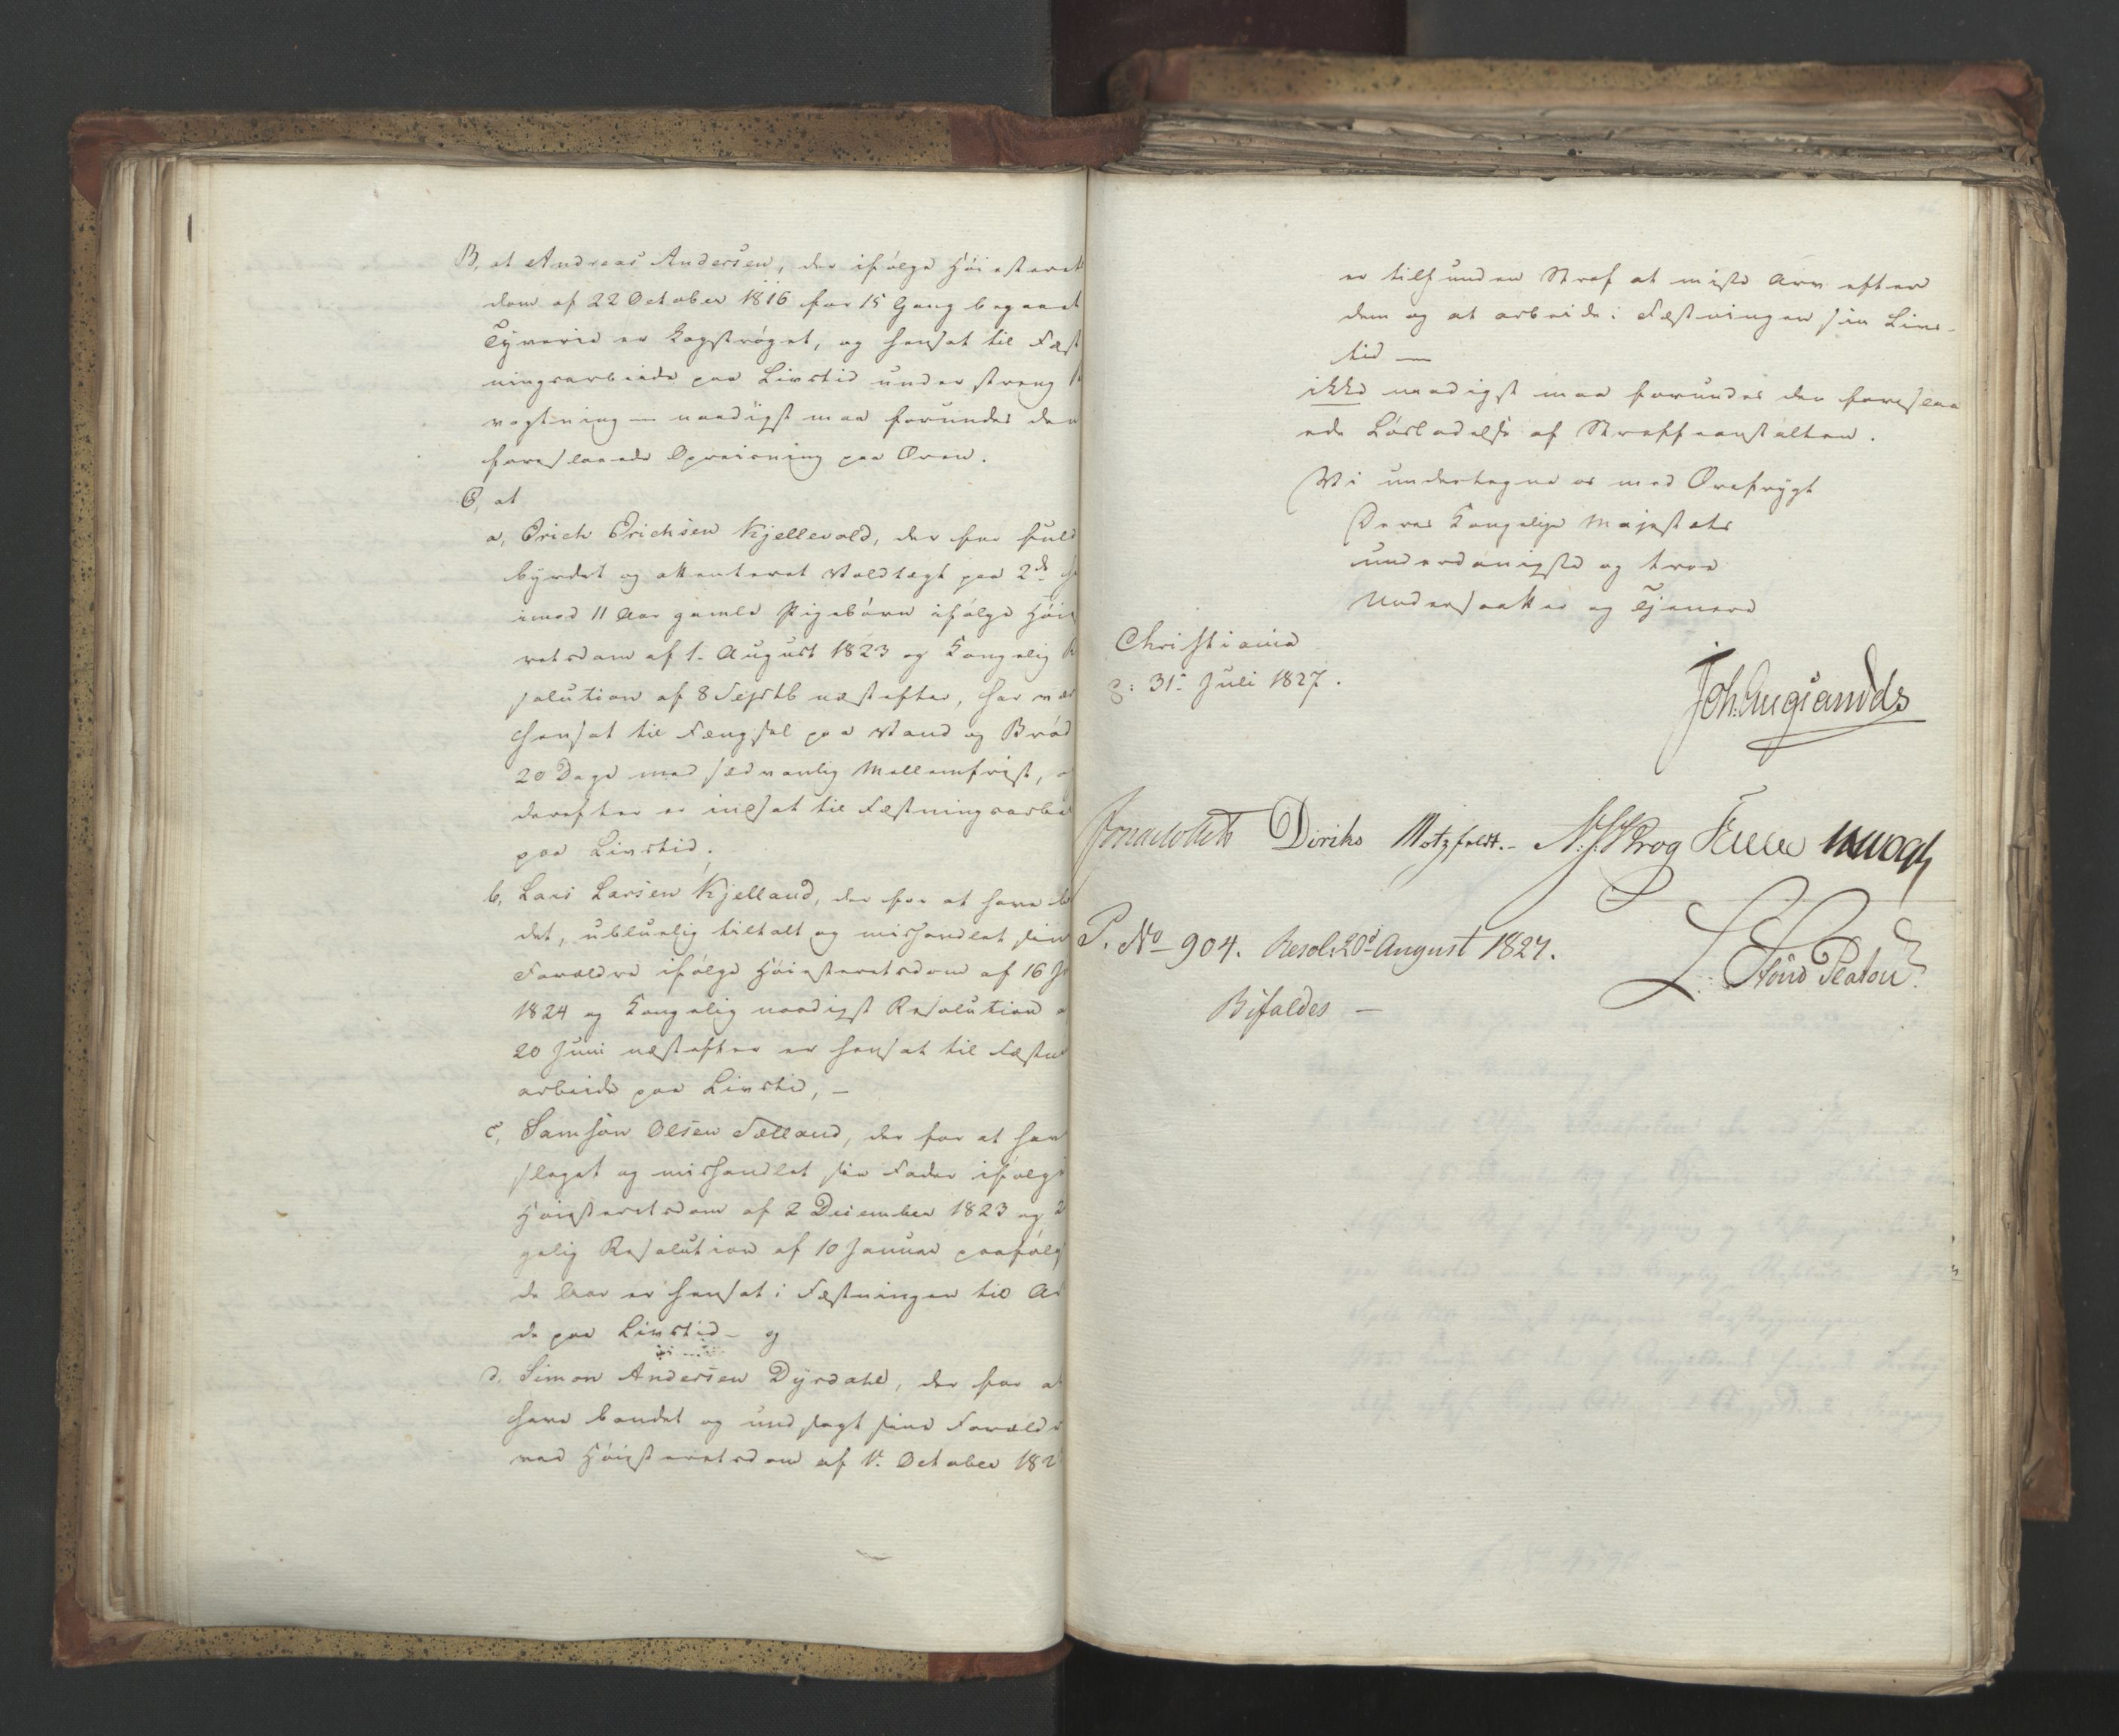 B, at Andreas Andersen, der ifølge Høiesteret
dom af 22 October 1816 for 15 Gang begaaet
Tyverie er Kagstrøget, og hensat til Fæst
ningsarbeide paa Livstid under streng
vogtning — naadigst maa forundes den
foreslaaede Opreisning paa Æren.
C, at
a, Erich Erichsen Kjellevold, der for fuld
byrdet og attenteret Voldtægt paa 2de
imod 11 Aar gamle Pigebørn ifølge Høie
retsdom af 1. August 1823 og Kongelig R
solution af 8 Septb næstefter, har vær
hensat til Fængsel paa Vand og Brød
20 Dage med sædvanlig Mellemfrist, o
derefter er indsat til Fæstningsarbei
paa Livstid;
b, Lars Larsen Kjelland, der for at have
det, ubluelig tiltalt og mishandlet sine
Forældre ifølge Høiesteretsdom af 16
1824 og Kongelig naadigst Resolution a
20 Juni næstefter er hensat til Fæstn
arbeide paa Livstid, —
c, Samson Olsen Fælland, der for at hav
slaget og mishandlet sin Fader ifølge
Høiesteretsdom af 2 December 1823 og
gelig Resolution af 10 Januar paafølg
de Aar er hensat i Fæstningen til Ar
de paa Livstid — og
d, Simon Andersen Dyrdahl, der for at
have bandet og undsagt sine Forældr
ved Høiesteretsdom af 1. October 182
er tilfunden Straf at miste Arv efter
dem og at arbeide i Fæstningen sin Livs-
tid —
ikke naadigst maa forundes den foreslaa
ede Løsladelse af Straffeanstalten.
Vi undertegne os med Ærefrygt
Deres Kongelige Majestæts
underdanigste og troe
Undersaatter og Tjenere
Christiania
d: 31. Juli 1827.
Joh. Aug: Sandels
Jonas Collett Diriks Motzfeldt. N. J. Krog Fasting
P. No 904. Resol: 20d August 1827.
Stoud Platou
Bifaldes —